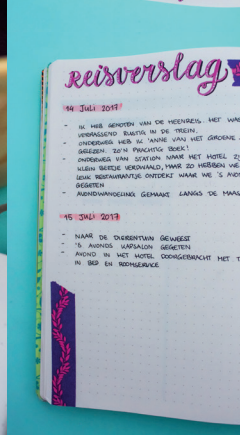 Reisverslag
14 JULI 2017
- IK HEB GENOTEN VAN DE HEENREIS. HET WAS
VERRASSEND RUSTIG IN DE TREIN.
- ONDERWEG HEB IK 'ANNE VAN HET GROENE
GELEZEN. ZO'N PRACHTIG BOEK!
- ONDERWEG VAN STATION NAAR HET HOTEL
KLEIN BEETJE VERDWAALD, MAAR ZO HEBBEN WE
LEUK RESTAURANTJE ONTDEKT WAAR WE 'S AVO
GEGETEN
- AVONDWANDELING GEMAAKT LANGS DE MAAS
15 JULI 2017
- NAAR DE DIERENTUIN GEWEEST
- 'S AVONDS KAPSALON GEGETEN
- AVOND IN HET HOTEL DOORGEBRACHT MET T
IN BED EN ROOMSERVICE